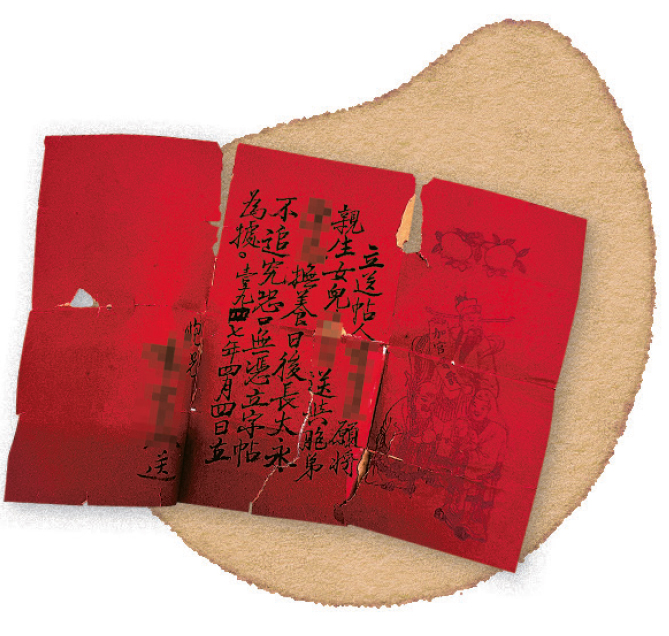 加官
立送帖人願將
親生女兒送與胞弟
撫養日後長大永
不追究恐口無憑立字帖
為據。壹九四七年四月四日立
胞兄
送